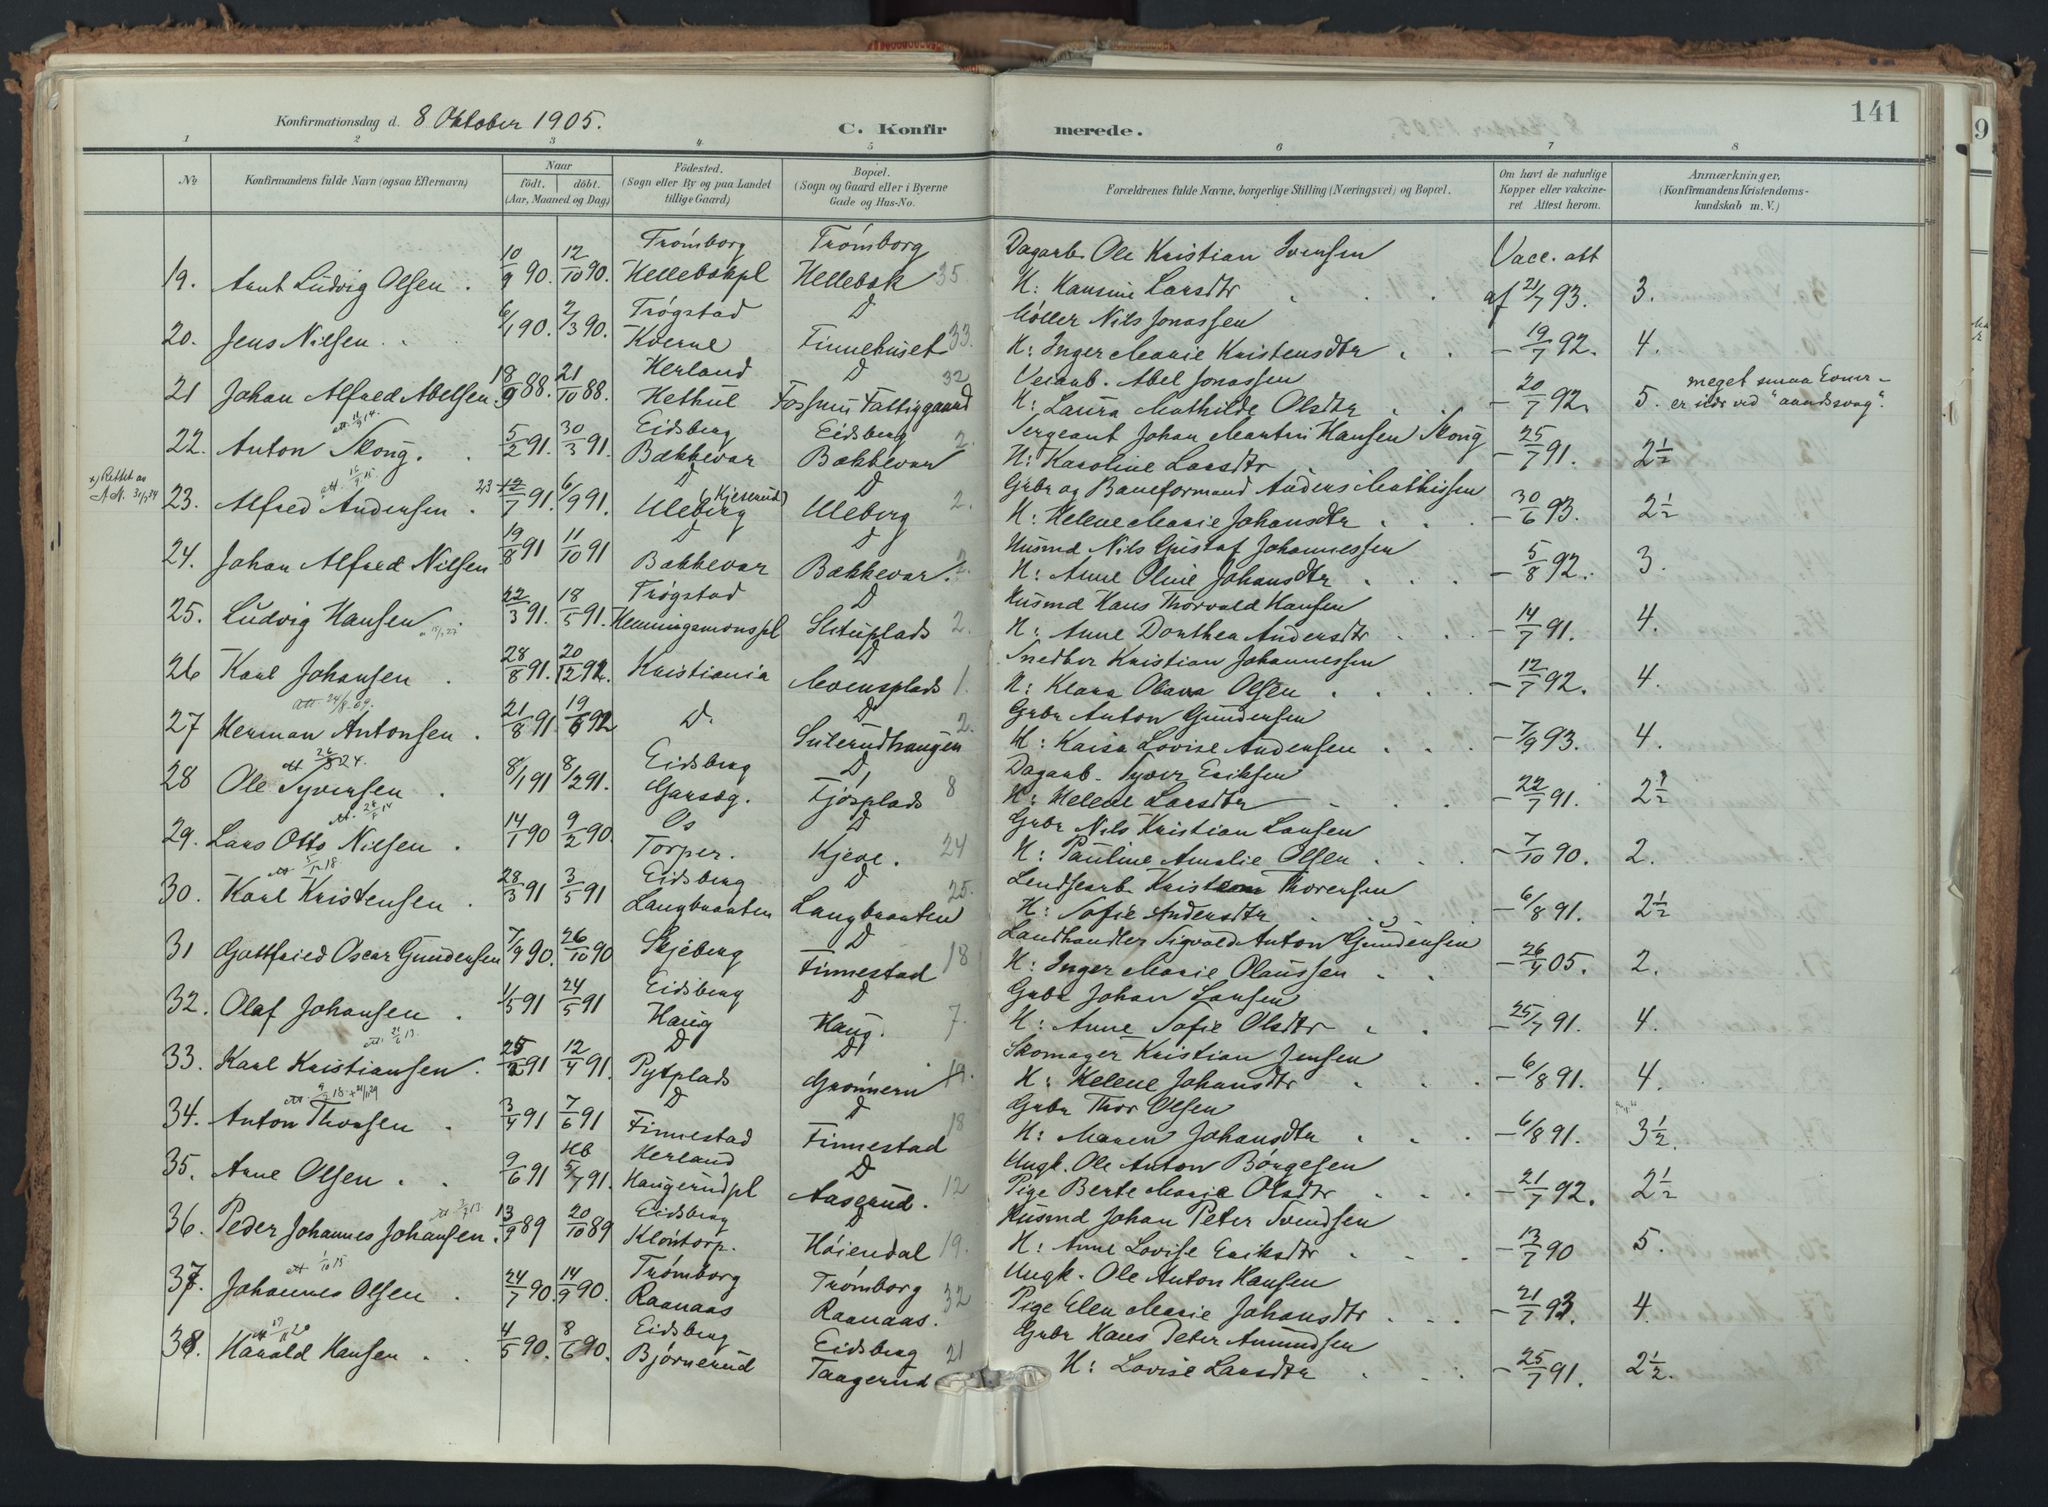 141
Konfirmationsdag d. 8 Oktober 1905.
C. Konfir merede.
1 2 3 4 5 6 7 8
No
Konfirmandens fulde Navn (ogsaa Efternavn)
Naar
födt. döbt.
(Aar, Maaned og Dag)
Födested.
(Sogn eller By og paa Landet
tillige Gaard)
Bopæl.
(Sogn og Gaard eller i Byerne
Gade og Hus-No.
Forældrenes fulde Navne, borgerlige Stilling (Næringsvei) og Bopæl.
Om havt de naturlige
Kopper eller vakcine-
ret Attest herom.
Anmærkninger,
(Konfirmandens Kristendoms-
kundskab m. V.)
Trømborg Trømborg Dagarb. Ole Kristian Svensen Vacc. att
19. Arnt Ludvig Olsen. 10/9 90. 12/10 90. Hellebækpl Hellebæk 35. H: Hansine Larsdtr af 21/7 93. 3.
Trøgstad D Møller Nils Jonassen
20. Jens Nilsen. 6/1 90. 2/3 90. Kverne Finnehuset 33. H: Inger Marie Kristensdtr - 19/7 92. 4.
Herland D 32 Veiarb. Abel Jonassen meget smaa Evner -
21 Johan Alfred Abelsen. 18/9 88. 21/10 88. Hethul Fossum Fattiggaard H: Laura Mathilde Olsdtr - 20/7 92. 5. er ved "aandssvag".
Eidsberg Eidsberg Sergeant Johan Martin Hansen Skong
22. Anton Skong. 5/2 91. 30/3 91. Bækkevar Bækkevar 2. H: Karoline Larsdtr - 25/7 91. 2½
x) Rettet
D (Kjeserud) D Grbr og Baneformand Anders Mathissen
23. Alfred Andersen. 23 12/7 91. 6/9 91. Uleberg Uleberg 2. H: Helene Marie Johansdtr - 30/6 93. 2½
D D Husmd Nils Gustaf Johannessen
24. Johan Alfred Nilsen 19/8 91 11/10 91 Bækkevar Bækkevar. 2. H: Anne Oline Johansdtr - 5/8 92. 3.
Trøgstad D Husmd Hans Thorvald Hansen
25. Ludvig Hansen 22/3 91. 18/5 91. Hemmingsmonspl Slituplads 2. H: Anne Dorthea Andersdtr - 14/7 91. 4.
D Snedker Kristian Johannessen
26 Karl Johansen. 28/8 91. 20/12 92. Kristiania Moensplads 1. H: Klara Olava Olsen - 12/7 92. 4.
att 24/8 69.
D Grbr Anton Gundersen
27 Herman Antonsen. 21/8 91. 19/6 92 D. Suterudhaugen 2. H: Kaisa Lovise Andersen - 7/9 93. 4.
Eidsberg D Dagarb. Syver Eriksen
28 Ole Syversen. 8/1 91 8/2 91. Garseg. Fjøsplads 8 H: Helene Larsdtr - 22/7 91. 2½
Os D Grbr Nils Kristian Larsen
29. Lars Otto Nilsen. 14/1 90 9/2 90. Torper. Kjeve. 24 H: Pauline Amalie Olsen - 7/10 90. 2.
Eidsberg D Lendsearb. Kristen Thoresen
30. Karl Kristensen. 28/3 91 3/5 91 Langbraaten Langbraaten 25. H: Sofie Andersdtr - 6/8 91. 2½
D Landhandler Sigvald Anton Gundersen
31 Gottfried Oscar Gundersen 7/9 90. 26/10 90 Skjeberg Finnestad 18 H: Inger Marie Olaussen - 26/4 05. 2.
Eidsberg D Grbr Johan Larsen
32. Olaf Johansen. 1/5 91 24/5 91 Haug Haug. 7. H: Anne Sofie Olsdtr - 25/7 91. 4.
D D Skomager Kristian Jensen
33. Karl Kristiansen. 25/2 91 12/4 91. Pytplads Grønnern 19. H: Helene Johansdtr - 6/8 91. 4.
D D Grbr Thor Olsen
34. Anton Thorsen. 3/4 91 7/6 91 Finnestad Finnestad 18 H: Maren Johansdtr - 6/8 91. 3½
HB Herland D Ungk. Ole Anton Børgesen
35. Arne Olsen. 9/6 91 5/7 91. Haugerudpl Aaserud. 12 Pige Berte Marie Olsdtr - 21/7 92. 2½
Eidsberg D Husmd Johan Peter Svendsen
36. Peder Johannes Johansen. 13/9 89 20/10 89 Klontorp. Høiendal 19. H: Anne Lovise Eriksdtr - 13/7 90 5.
Trømborg Trømborg Ungk. Ole Anton Hansen
37. Johannes Olsen. 24/7 90. 14/9 90. Raanaas Raanaas. 32 Pige Elen Marie Johansdtr - 21/7 93. 4.
Eidsberg Eidsberg Grbr Hans Peter Amundsen
38. Harald Hansen. 4/5 90. 8/6 90. Bjørnerud Taagerud 21 H: Lovise Larsdtr - 25/7 91. 2½.